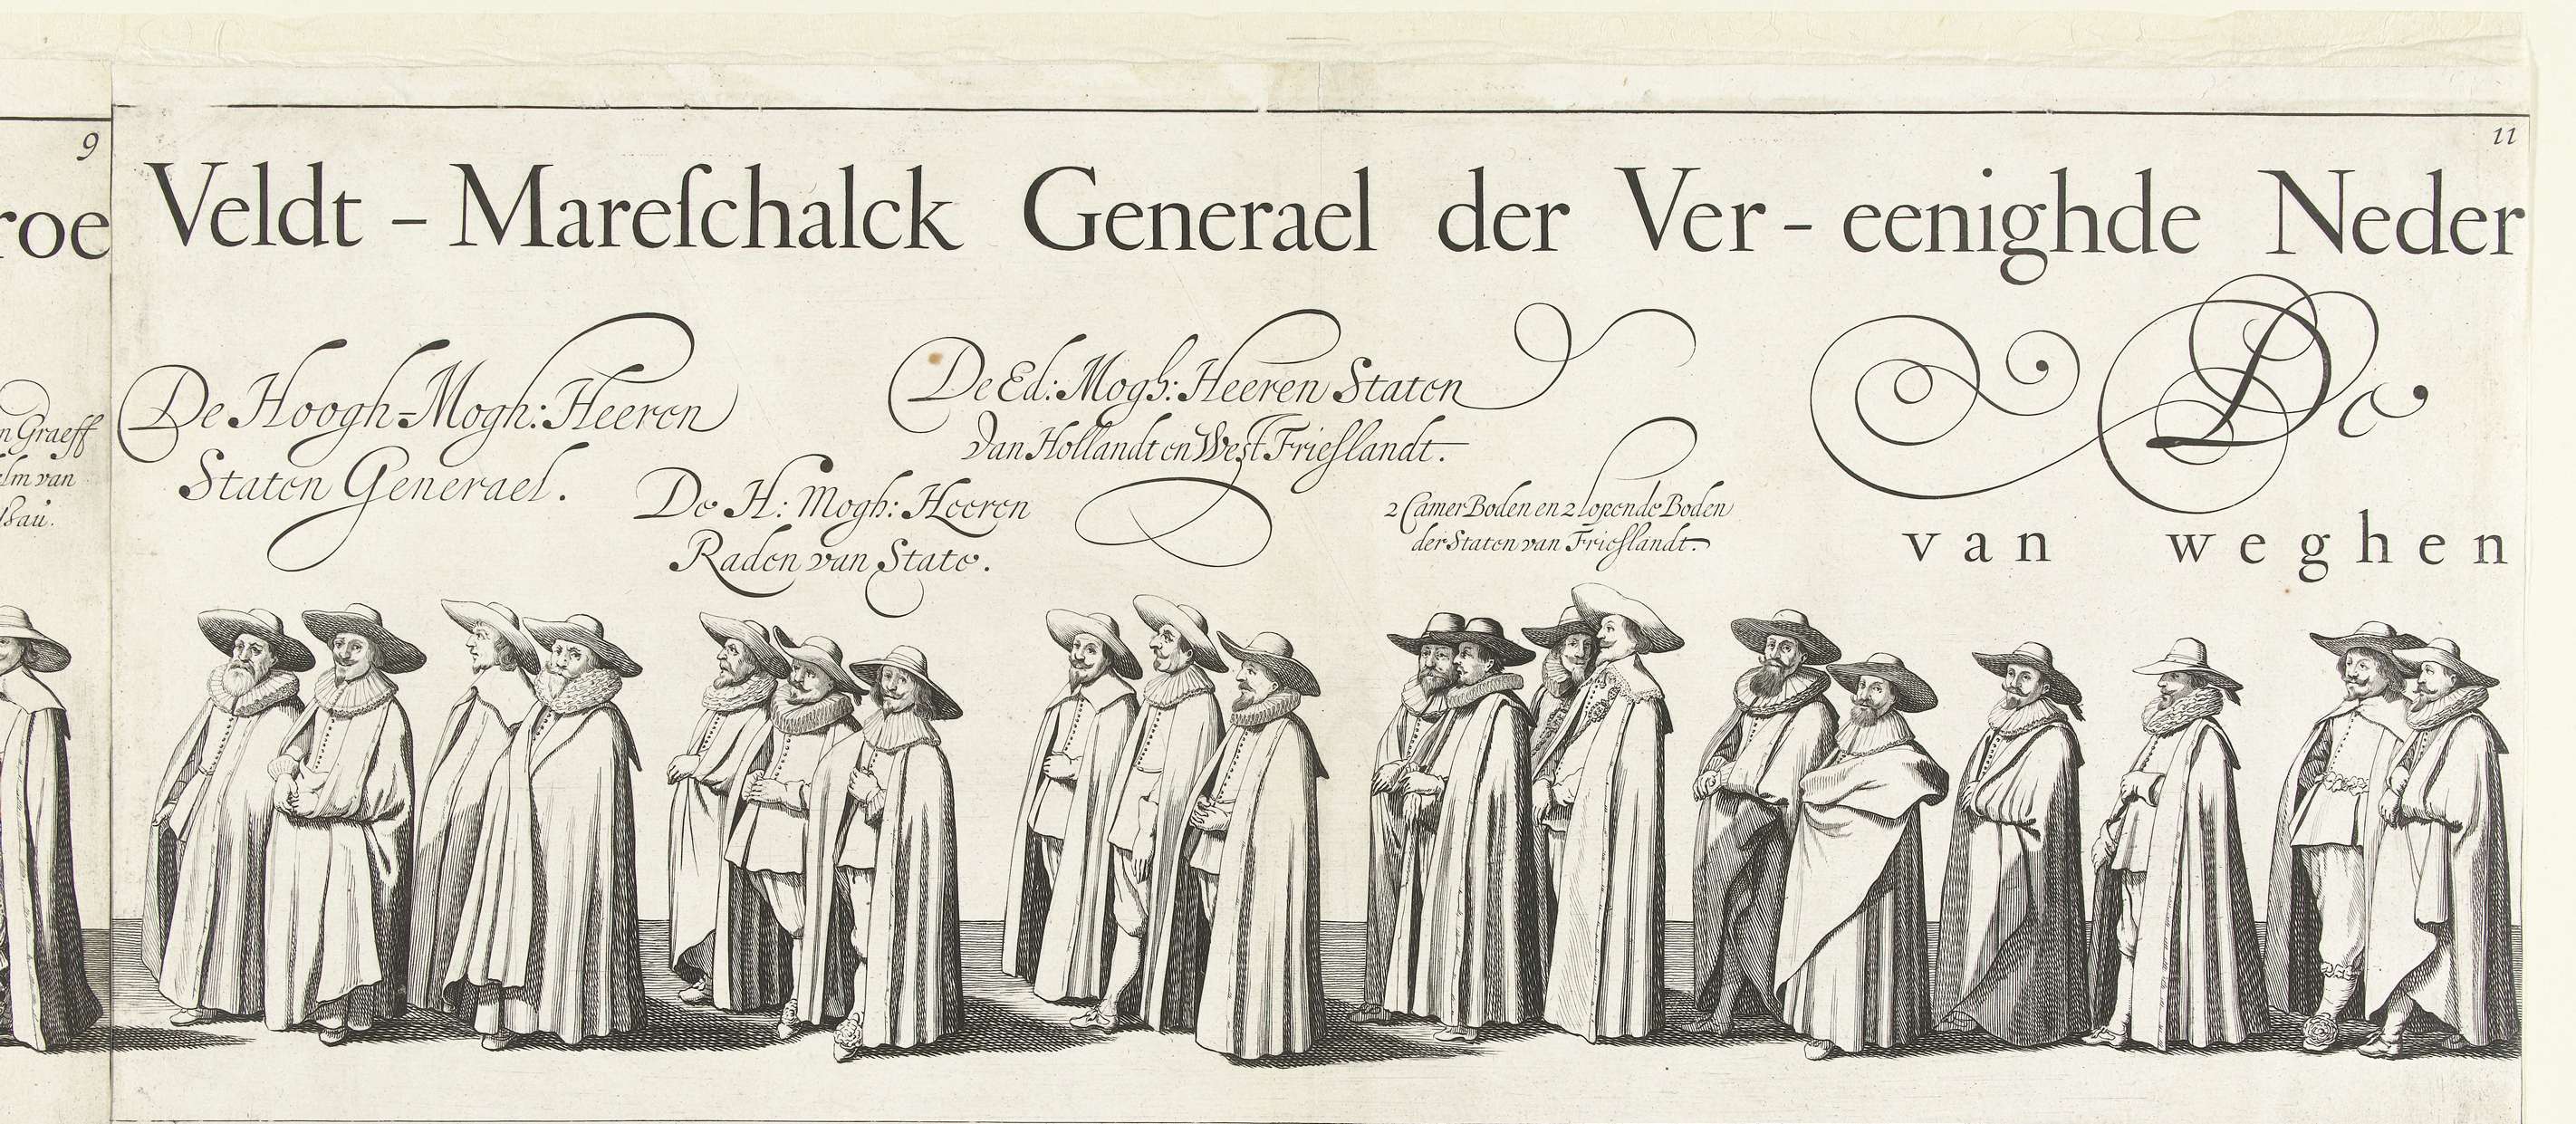 9
11
roe Veldt - Mareſchalck Generael der Ver - eenighde Neder
n Graeff
lm van
ſsau.
De Hoogh=Mogh: Heeren
Staten Generael.
De H: Mogh: Heeren
Raden van State.
De Ed: Mogh: Heeren Staten
Van Hollandt en West Frieslandt.
2 Camer Boden en 2 lopende Boden
der Staten van Frieslandt.
De
van weghen